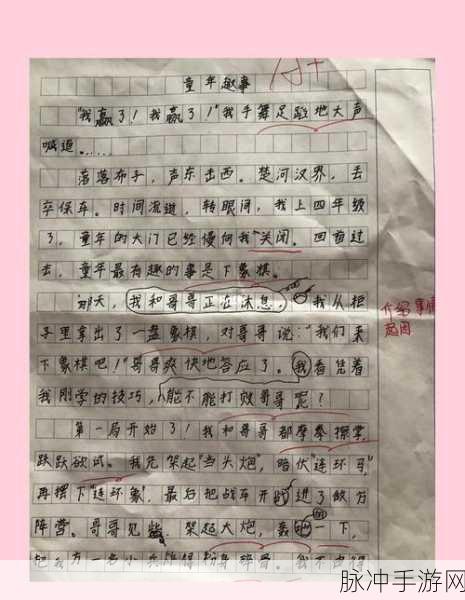 A+
童年趣事
“我赢了！我赢了！”我手舞足蹈地大声
喊道……
落落布子，声东击西。楚河汉界，丢
卒保车。时间流逝，转眼间，我上四年级
了，童年的大门已经慢向我“关闭。回首过
去，童年最有趣的事是下象棋。
那天，我和哥哥正在休息，我从柜
子里拿出了一盘象棋，对哥哥说：“我们来
下象棋吧！”哥哥爽快地答应了。我看凭着
我刚学的技巧，能不能打败哥哥呢？
介绍事情
起因
第一局开始了！我和哥哥都摩拳擦掌，
跃跃欲试。我先架起“当头炮”，暗伏“连环马”，
再摆下连环象，最后把战车开进了敌方
阵营。哥哥见，架起大炮，轰一下，
把我方一名小兵炸得粉身碎骨。我不由得
脉冲手游网